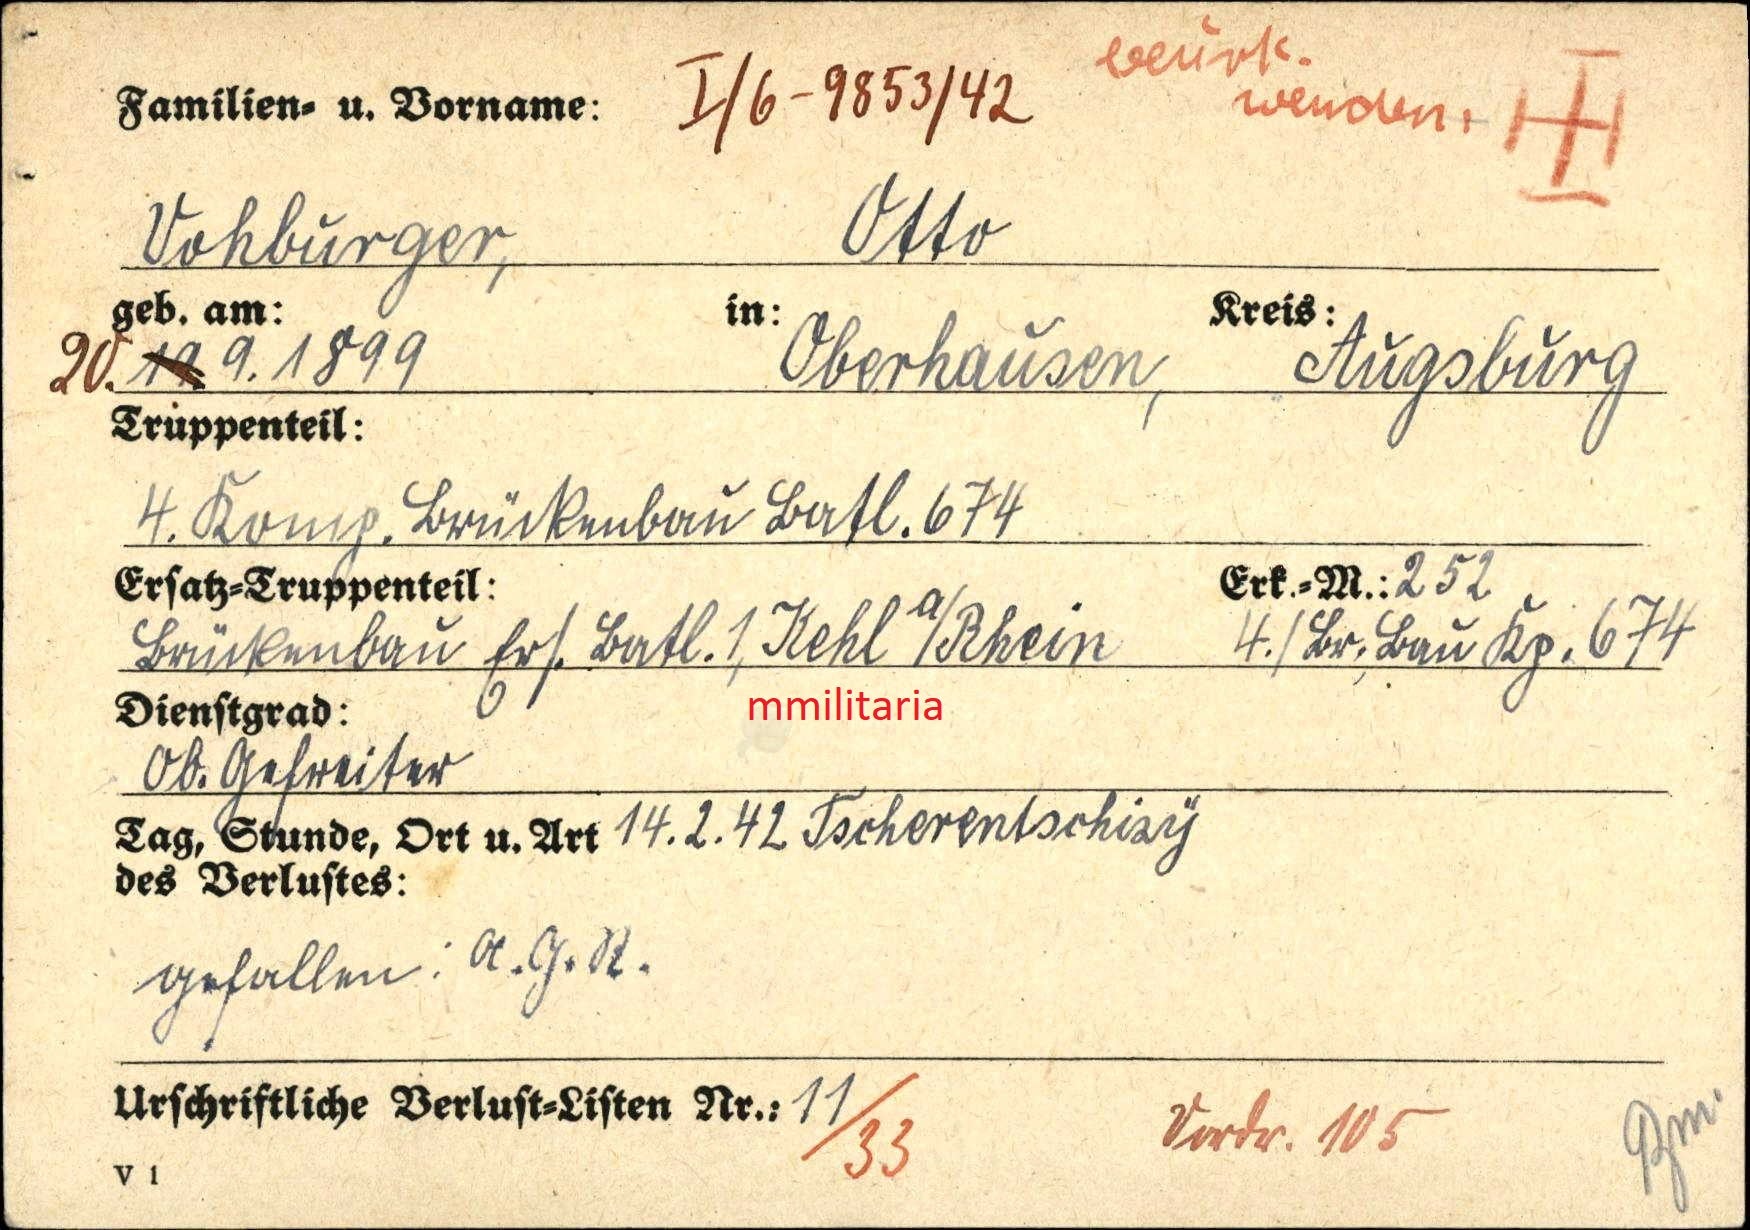 Familien- u. Vorname: I/6-9853/42 beurk.
wenden.
Vohburger, Otto
geb. am: in: Kreis:
20. 19. 9. 1899 Oberhausen, Augsburg
Truppenteil:
4. Komp. Brückenbau Batl. 674
Ersatz-Truppenteil: Erk.-M.: 252
Brückenbau Ers. Batl. 1, Kehl a/Rhein 4./Br. Bau Kp. 674
Dienstgrad:
mmilitaria
Ob. Gefreiter
Tag, Stunde, Ort u. Art 14.2.42 Tscherentschizÿ
des Verlustes:
gefallen: A.G.R.
Urschriftliche Verlust-Listen Nr.: 11/33 Vordr. 105
V 1